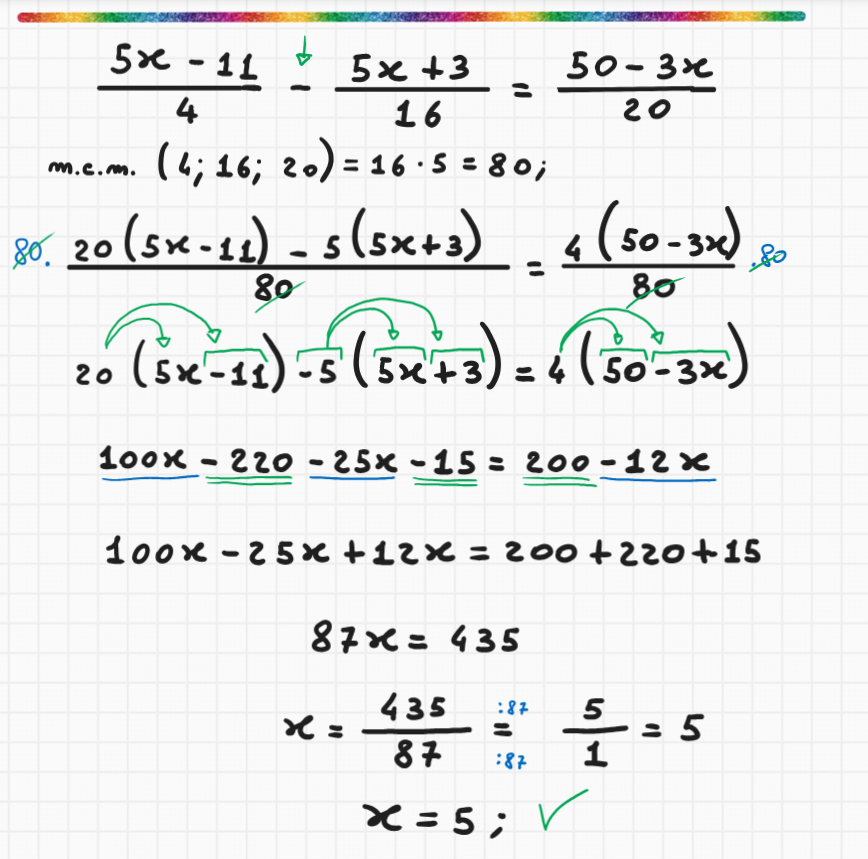 5x - 11 / 4 - 5x + 3 / 16 = 50 - 3x / 20
m.c.m. (4; 16; 20) = 16 · 5 = 80;
80 · 20(5x - 11) - 5(5x + 3) / 80 = 4(50 - 3x) / 80 · 80
20(5x - 11) - 5(5x + 3) = 4(50 - 3x)
100x - 220 - 25x - 15 = 200 - 12x
100x - 25x + 12x = 200 + 220 + 15
87x = 435
x = 435 / 87 = :87 :87 5 / 1 = 5
x = 5; ✓